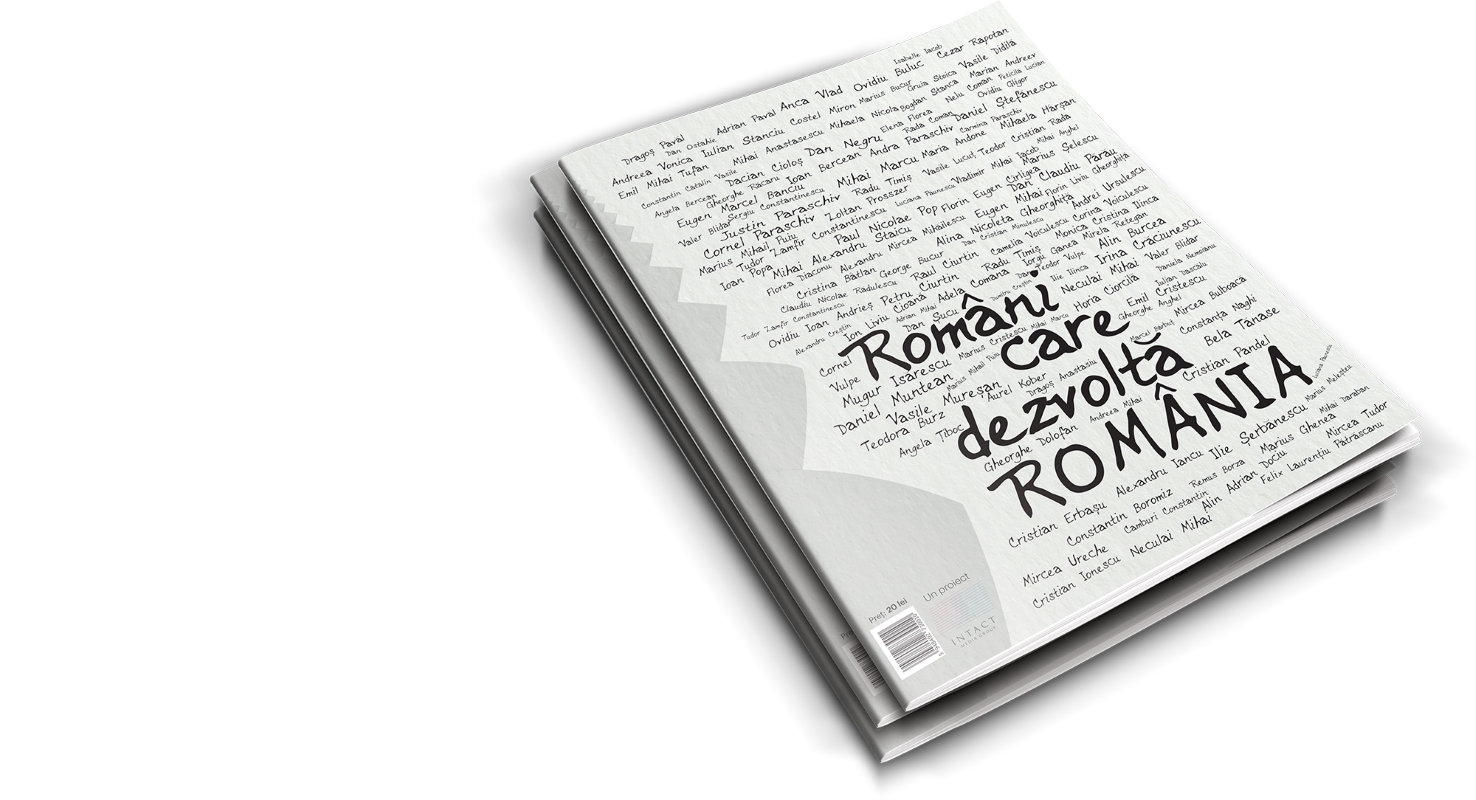 Isabelle Iacob
Dragoș Paval Adrian Paval Anca Vlad Ovidiu Buluc Cezar Rapotan
Dan Ostahie Costel Miron Marius Bucur Gruia Stoica Vasile Didilă
Andreea Vonica Iulian Stanciu Mihaela Nicola Bogdan Stanca Marian Andreev
Emil Mihai Tufan Mihai Anastasescu Elena Florea Nelu Coman Peticilă Lucian
Constantin Catalin Vasile Dacian Cioloș Dan Negru Rada Coman Ovidiu Gligor
Angela Bercean Gheorghe Racaru Ioan Bercean Andra Paraschiv Daniel Ștefănescu
Eugen Marcel Banciu Mihai Marcu Maria Andone Carmina Paraschiv Mihaela Hărșan
Valer Blidar Sergiu Constantinescu Radu Timiș Vasile Lucuț Teodor Cristian Rada
Justin Paraschiv Zoltan Prosszer Vladimir Mihai Iacob Mihai Anghel
Cornel Paraschiv Luciana Paunescu Eugen Cirligea Marius Șelescu
Marius Mihail Puiu Constantinescu Paul Nicolae Pop Florin Dan Claudiu Părău
Tudor Zamfir Mihai Alexandru Staicu Eugen Mihai Florin Liviu Gheorghiță
Ioan Popa Florea Diaconu Alexandru Mircea Mihailescu Alina Nicoleta Gheorghiță Andrei Ursulescu
Cristina Bâtlan George Bucur Dan Cristian Minulescu Corina Voiculescu
Claudiu Nicolae Radulescu Raul Ciurtin Camelia Voiculescu Monica Cristina Ilinca
Tudor Zamfir Constantinescu Petru Ciurtin Radu Timiș Iorgu Ganea Mirela Retegan
Ovidiu Ioan Andrieș Cioana Adela Comana Teodor Vulpe Alin Burcea
Alexandru Creștin Ion Liviu Adrian Mihai Dumitru Creștin Ilie Ilinca Irina Crăciunescu
Cornel Vulpe Dan Sucu Neculai Mihai Valer Blidar
Români
care
dezvoltă
ROMÂNIA
Mugur Isarescu Marius Cristescu Mihai Marcu Horia Ciorcilă Daniela Nemoianu
Daniel Muntean Marius Mihail Puiu Gheorghe Anghel Emil Cristescu Iulian Dascalu
Vasile Mureșan Aurel Kober Dragoș Anastasiu Marcel Bărbut Mircea Bulboacă
Teodora Burz Constanța Naghi
Angela Țiboc Gheorghe Dolofan Andreea Mihai Cristian Pandel Bela Tănase
Luciana Paunescu
Cristian Erbașu Alexandru Iancu Ilie Șerbănescu Marius Melesteu
Constantin Boromiz Remus Borza Marius Ghenea Mihai Daraban
Mircea Ureche Camburi Constantin Alin Adrian Dociu Mircea Tudor
Cristian Ionescu Neculai Mihai Felix Laurențiu Patrascanu
Preț: 20 lei
Un proiect
INTACT
MEDIA GROUP